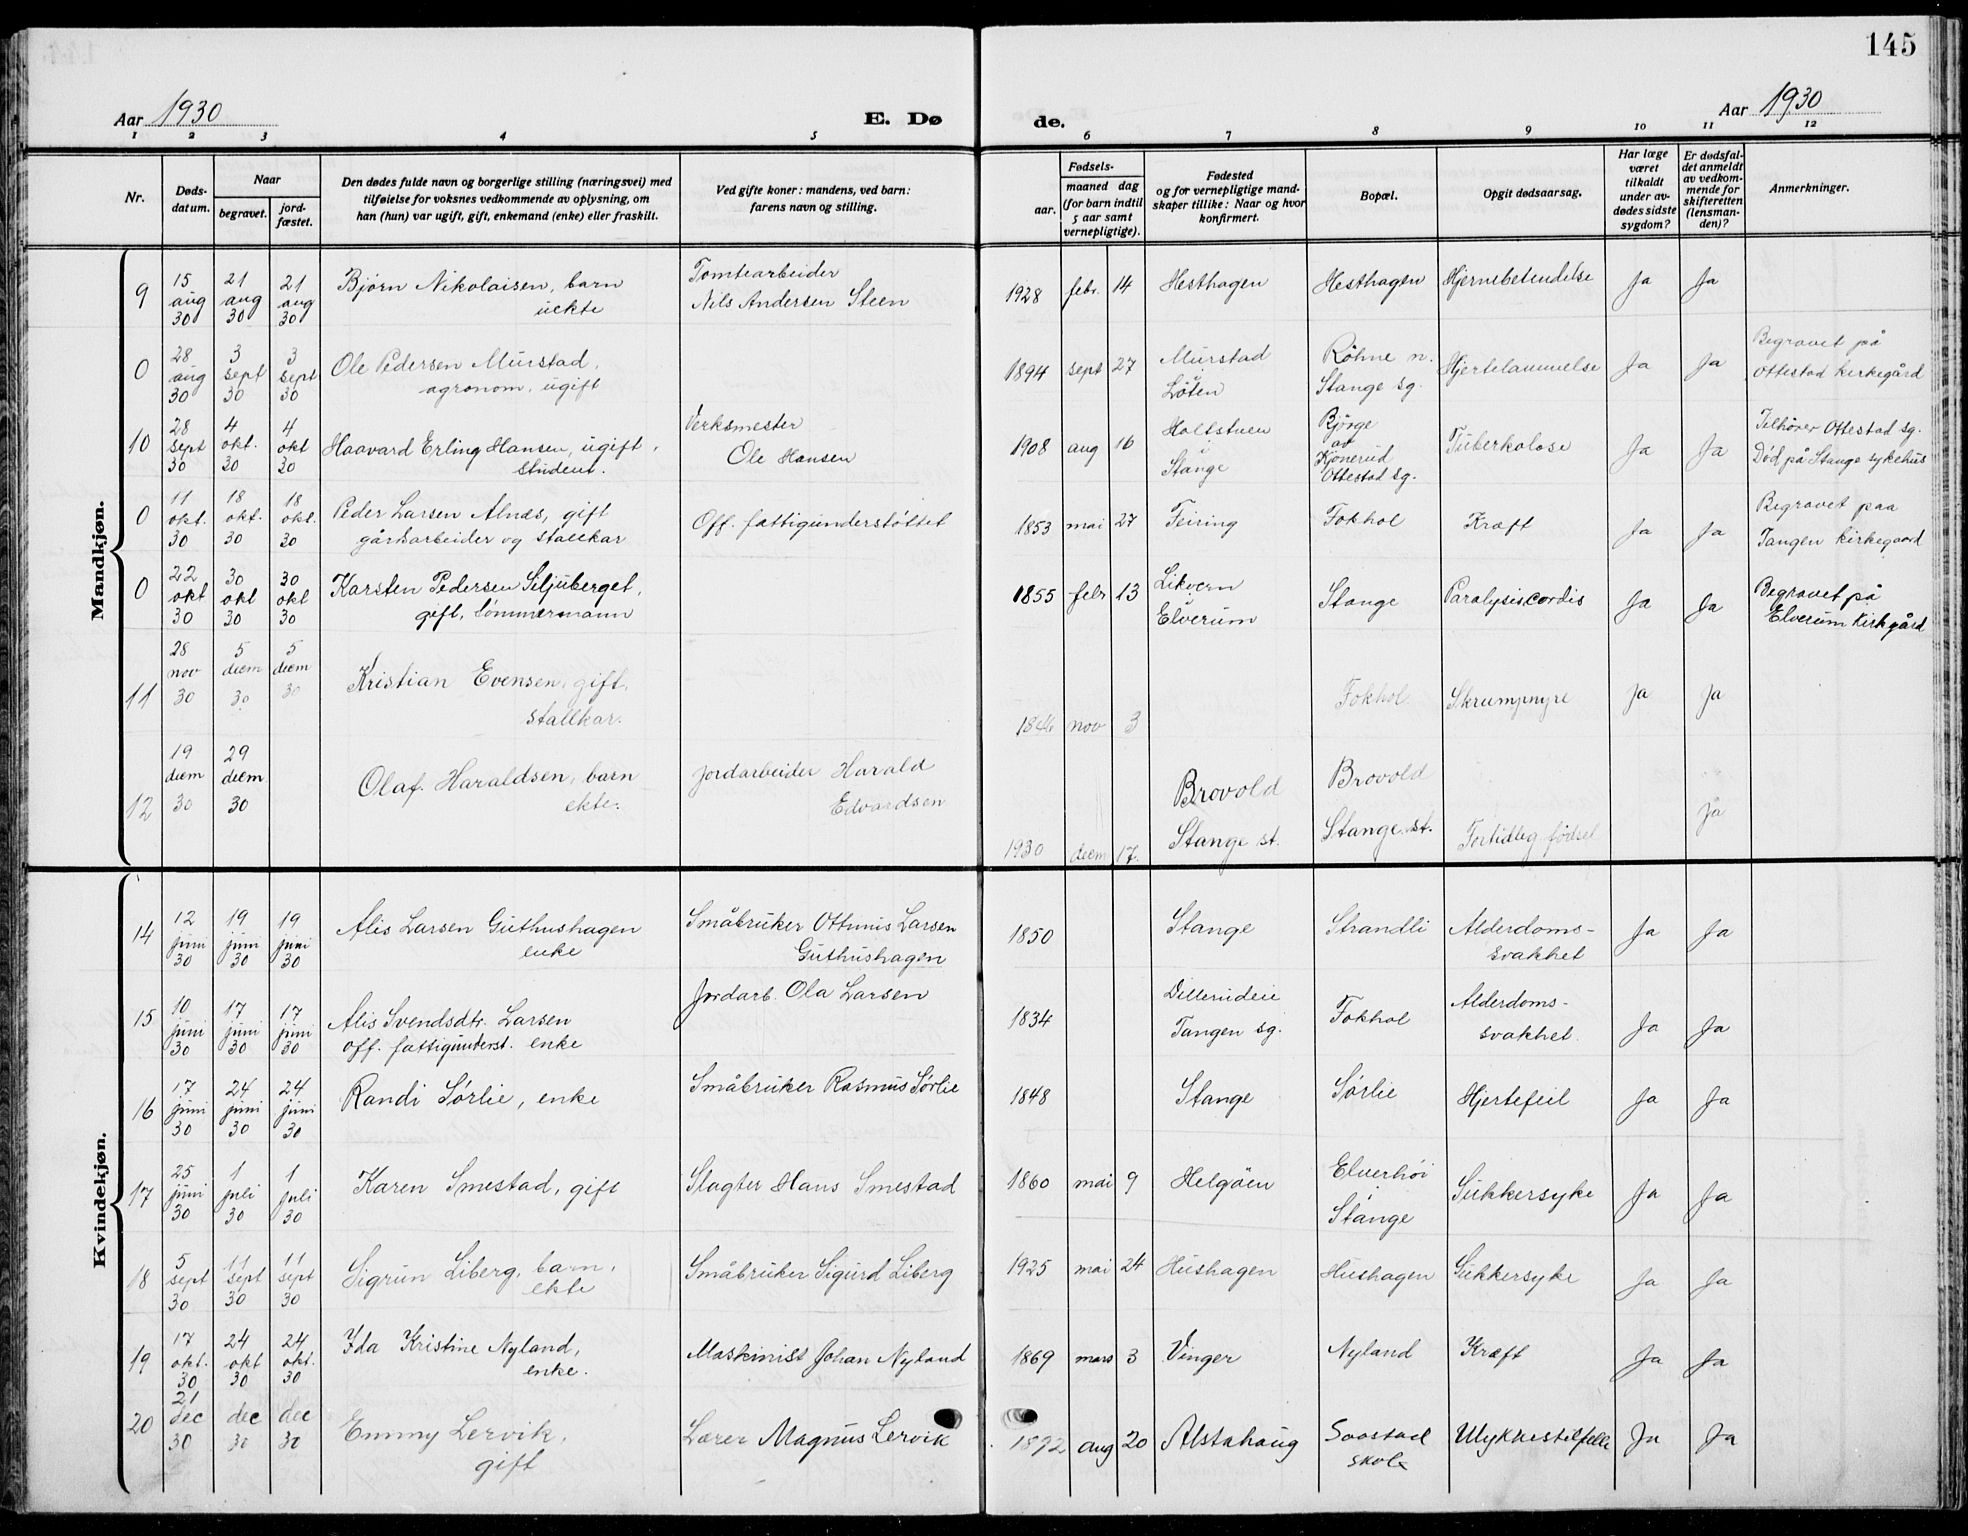 145
Aar 1930 E. Døde. Aar 1930
1 2 3 4 5 6 7 8 9 10 11 12
Nr.
Døds-datum.
Naar
begravet.
jord-fæstet.
Den dødes fulde navn og borgerlige stilling (næringsvei) med
tilføielse for voksnes vedkommende av oplysning, om
han (hun) var ugift, gift, enkemand (enke) eller fraskilt.
Ved gifte koner: mandens, ved barn:
farens navn og stilling.
Fødsels-
aar.
maaned dag
(for barn indtil
5 aar samt
vernepligtige).
Fødested
og for vernepligtige mand-
skaper tillike: Naar og hvor
konfirmert.
Bopæl.
Opgit dødsaarsag.
Har læge
været
tilkaldt
under av-
dødes sidste
sygdom?
Er dødsfal-
det anmeldt
av vedkom-
mende for
skifteretten
(lensman-
den)?
Anmerkninger.
Mandkjøn.
9 15 aug 30 21 aug 30 21 aug 30 Bjørn Nikolaisen, barn uekte Tomtearbeider Nils Andersen Steen 1928 febr. 14 Hesthagen Hesthagen Hjernebetendelse Ja Ja
0 28 aug 30 3 sept 30 3 sept 30 Ole Pedersen Murstad, agronom, ugift 1894 sept 27 Murstad i Løten Røhne n. Stange sg. Hjertelammelse Ja Ja Begravet på Ottestad kirkegård
10 28 sept 30 4 okt. 30 4 okt 30 Haavard Erling Hansen, ugift, student. Verksmester Ole Hansen 1908 aug 16 Holtstuen i Stange Bjørge av Kjonerud Ottestad sg. Tuberkolose Ja Ja Tilhører Ottestad sg. Død på Stange sykehus
0 11 okt. 30 18 okt. 30 18 okt. 30 Peder Larsen Alnæs, gift gårdsarbeider og stallkar Off. fattigunderstøttet 1853 mai 27 Feiring Fokhol Kræft Ja Ja Begravet paa Tangen kirkegaard
0 22 okt 30 30 okt 30 30 okt 30 Karsten Pedersen Siljuberget, gift, tømmermann 1855 febr 13 Likvern Elverum Stange Paralysis cordis Ja Ja Begravet på Elverum Kirkgård
11 28 nov 30 5 decm 30 5 decm 30 Kristian Evensen, gift, stallkar. nov 3 Fokhol Skrumpnyre Ja Ja
12 19 decm 30 29 decm 30 Olaf Haraldsen, barn ekte. Jordarbeider Harald Edvardsen 1930 decm 17. Brovold Stange st. Brovold Stange st. Fortidleg fødsel Ja
Kvindekjøn.
14 12 juni 30 19 juni 30 19 juni 30 Alis Larsen Guthushagen enke Småbruker Ottinius Larsen Guthushagen 1850 Stange Strandli Alderdoms- svakhet Ja Ja
15 10 juni 30 17 juni 30 17 juni 30 Alis Svendsdtr. Larsen off. fattigunderst. enke Jordarb. Ola Larsen 1834 Dillerudeie Tangen sg. Fokhol Alderdoms- svakhet. Ja Ja
16 17 juni 30 24 juni 30 24 juni 30 Randi Sørlie, enke Småbruker Rasmus Sørlie 1848 Stange Sørlie Hjertefeil Ja Ja
17 25 juni 30 1 juli 30 1 juli 30 Karen Smestad, gift Slagter Hans Smestad 1860 mai 9 Helgøen Elverhøi Stange Sukkersyke Ja Ja
18 5 sept 30 11 sept 30 11 sept 30 Sigrun Liberg, barn, ekte Småbruker Sigurd Liberg 1925 mai 24 Hushagen Hushagen Sukkersyke Ja Ja
19 17 okt. 30 24 okt 30 24 okt. 30 Ida Kristine Nyland, enke. Maskinist Johan Nyland 1869 mars 3 Vinger Nyland Kræft Ja Ja
20 21 dec 30 dec 30 dec 30 Emmy Lervik, gift Lærer Magnus Lervik 1892 aug 20 Alstahaug Saastad skole Ulykkestilfelle Ja Ja